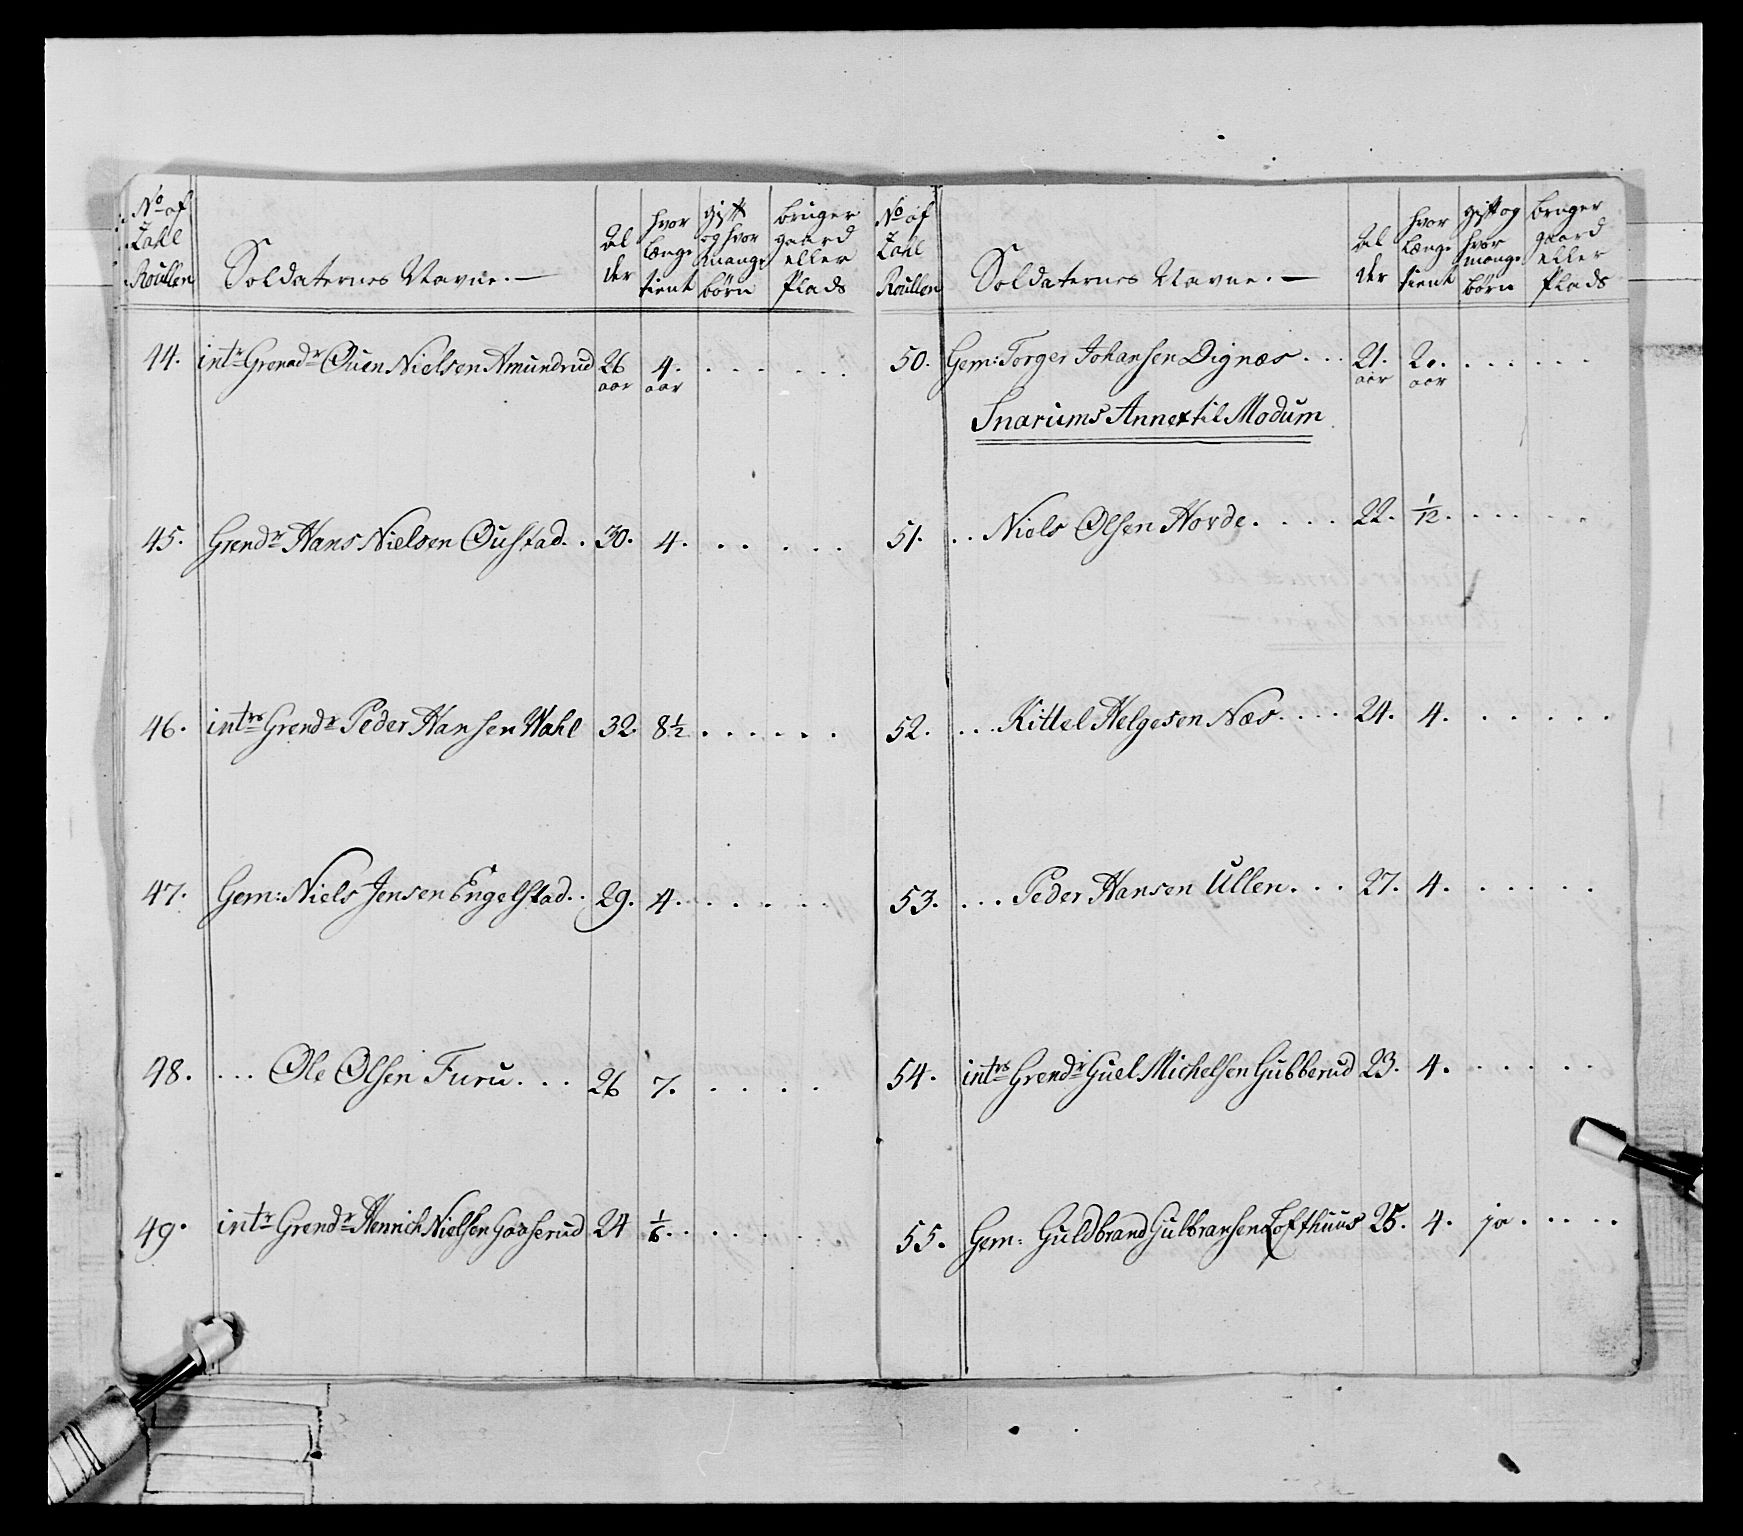 No af Zahl Roullen
Soldaternes Navne. —
Al der
hvor længe tient
gift og hvor mange börn
bruger gaard eller Plads
44. intr Grenadr Ouen Nielsen Amundrud 26 aar 4. aar
45. Grendr Hans Nielsen Oustad. . 30. 4.
46. intrs Grendr Peder Hansen Wahl 32 8½
47. Gem: Niels Jensen Engelstad. . 29. 4.
48. ... Ole Olsen Furu. . . 26 7.
49. intr Grendr Henrich Nielsen Gaaserud 24 1/6.
No af Zahl Roullen
Soldaternes Navne. —
Al der
hvor længe tient
gift og hvor mange börn
bruger gaard eller Plads
50. Gem: Torger Johansen Dignæs . . . 21. aar 2. aar
Snarums Annex til Modum
51. . . Niels Olsen Horde. . . . . 22. 1/12.
52. ... Kittel Helgesen Næs. . . . 24. 4.
53. ... Peder Hansen Ullen. . . 27. 4.
54. intrs Grendr Guel Michelsen Gubberud 23. 4.
55. Gem: Guldbrand Gulbransen Lofthuus 25. 4. ja